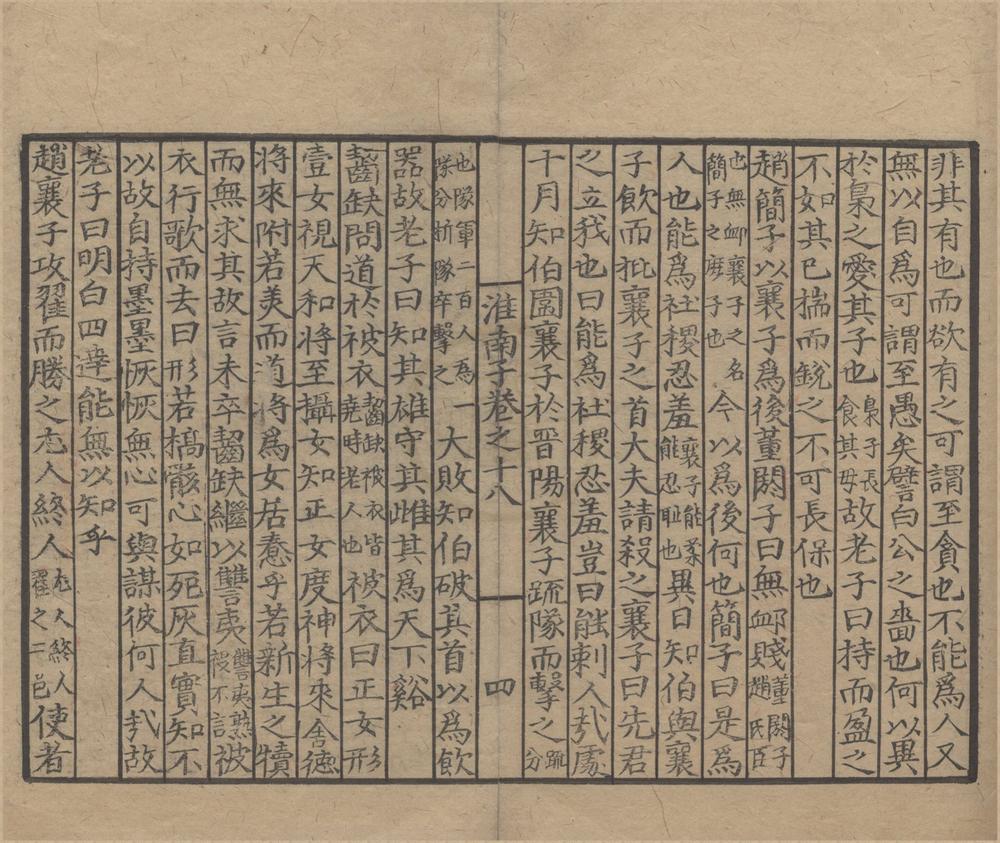 非其有也而欲有之可謂至貪也不能爲人又
無以自爲可謂至愚矣譬白公之嗇也何以異
於梟之愛其子也梟子長食其母故老子曰持而盈之
不如其巳揣而銳之不可長保也
趙簡子以襄子爲後董閼子曰無䘏賤董閼子趙氏臣
也無䘏襄子之名簡子之庶子也今以爲後何也簡子曰是爲
人也能爲社稷忍羞襄子能柔能忍耻也異日知伯與襄
子飲而批襄子之首大夫請殺之襄子曰先君
之立我也曰能爲社稷忍羞豈曰能刺人哉處
十月知伯圍襄子於晉陽襄子疏隊而擊之疏分
淮南子卷之十八 四
也隊軍二百人為一隊分斨隊卒擊之大敗知伯破其首以爲飲
器故老子曰知其雄守其雌其爲天下谿
齧缺問道於被衣齧缺被衣皆堯時老人也被衣曰正女形
壹女視天和將至攝女知正女度神將來舍德
將來附若美而道將爲女居惷乎若新生之犢
而無求其故言未卒齧缺繼以讐夷讐夷熟視不言被
衣行歌而去曰形若槁骸心如死灰直實知不
以故自持墨墨恢恢無心可與謀彼何人哉故
老子曰明白四達能無以知乎
趙襄子攻翟而勝之尤人終人尤人終人翟之二邑使者